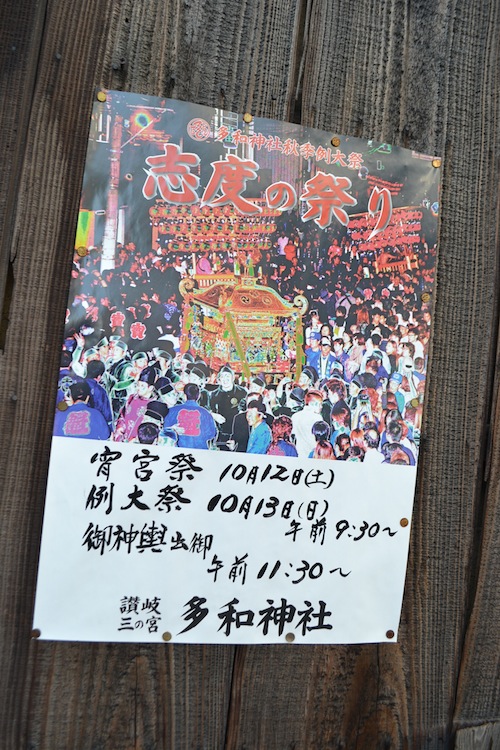 多和神社秋季例大祭
志度の祭り
宵宮祭 10月12日(土)
例大祭 10月13日(日)
午前9:30〜
御神輿出御
午前11:30〜
讃岐
三の宮 多和神社